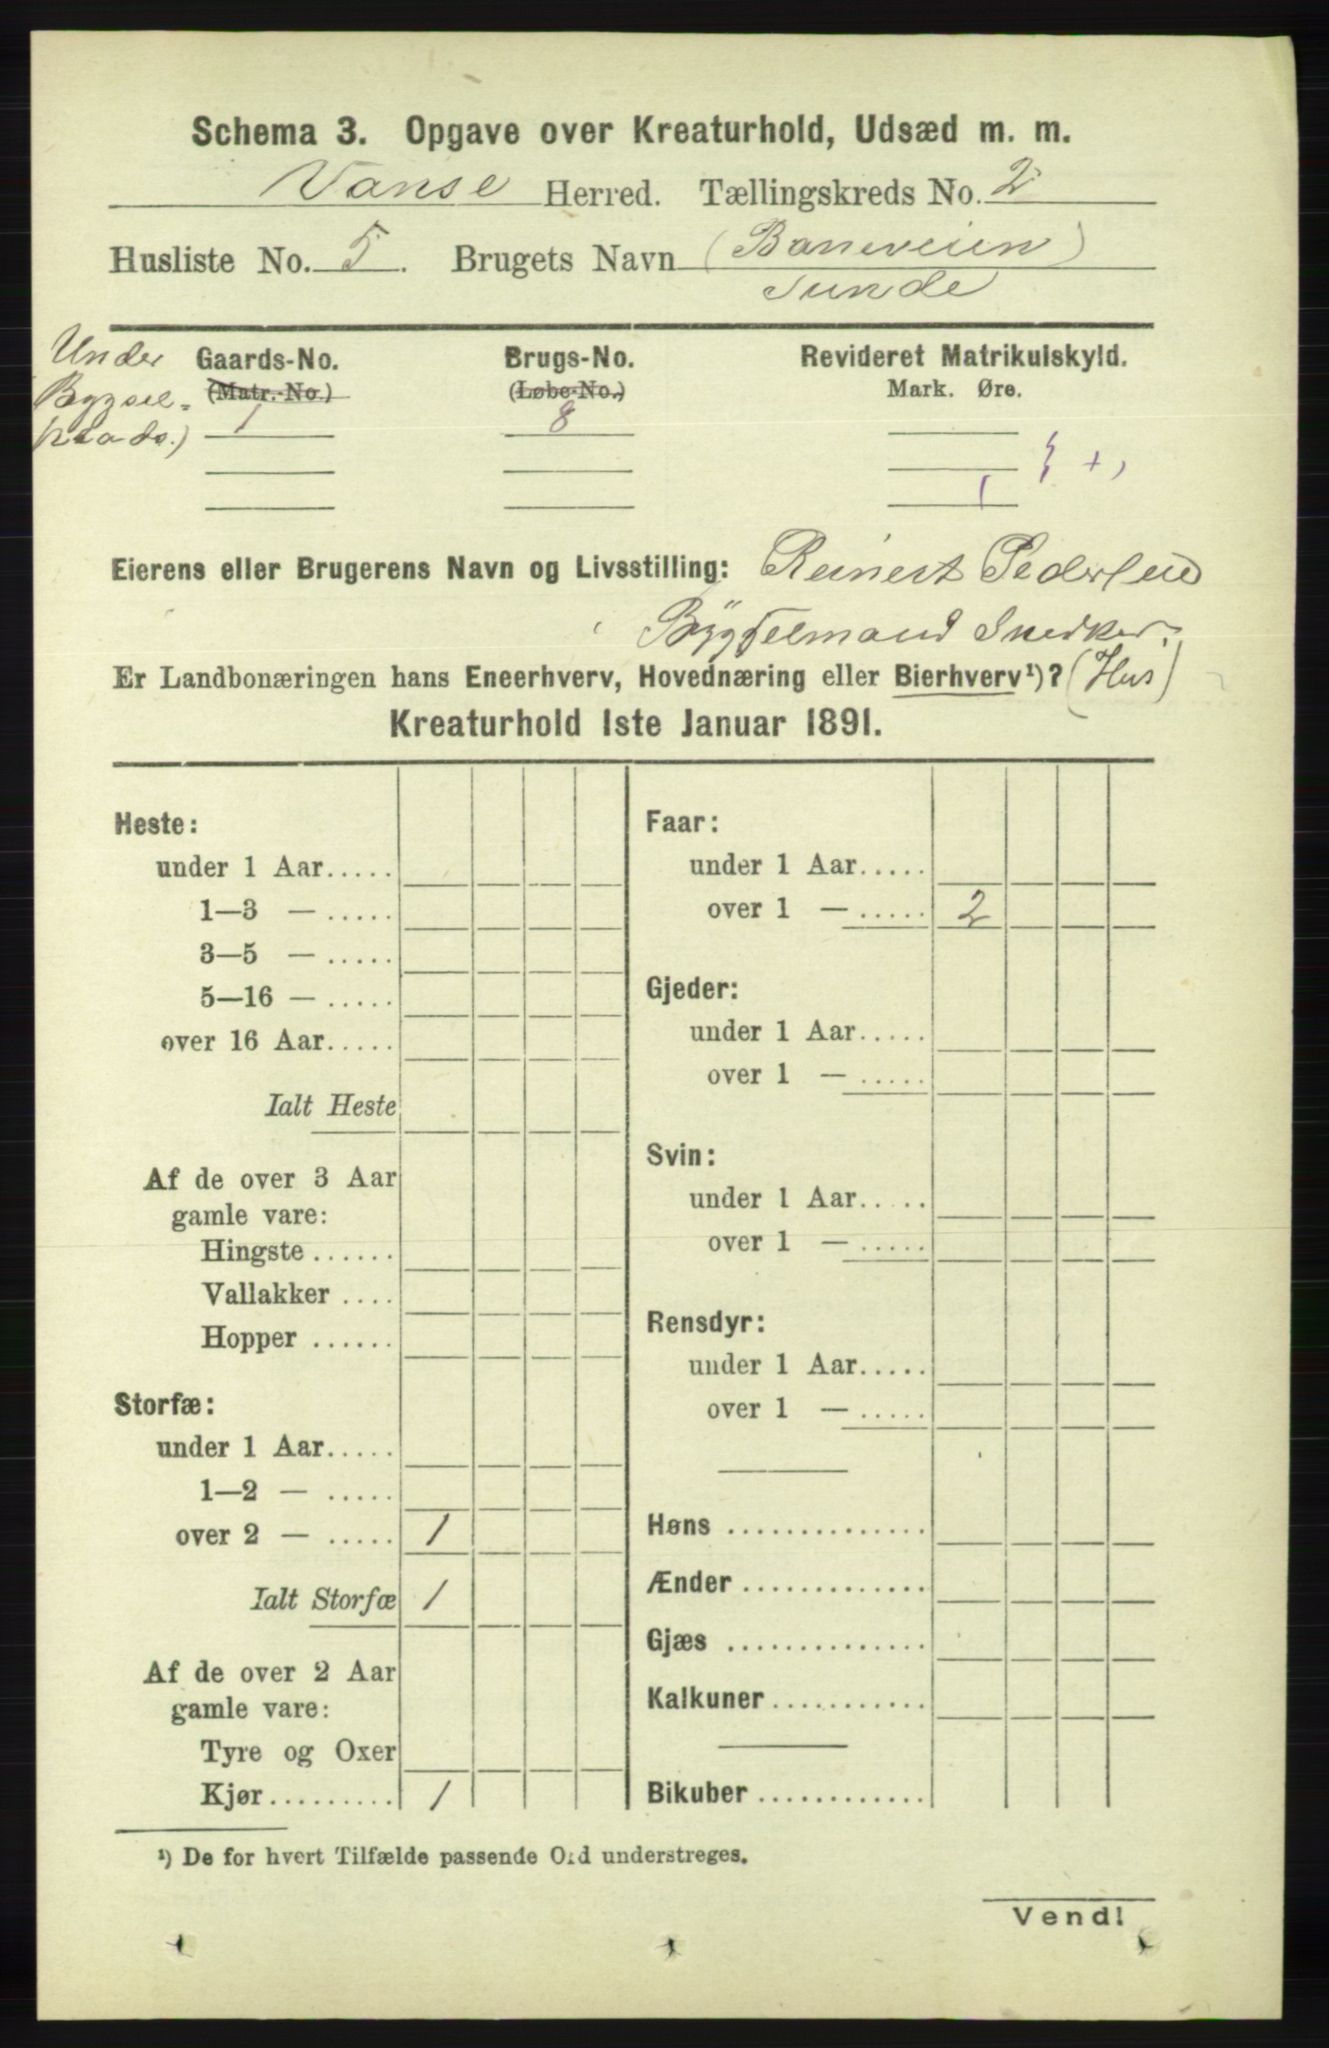 Schema 3. Opgave over Kreaturhold, Udsæd m. m.
Vanse Herred. Tællingskreds No. 2
Husliste No. 5. Brugets Navn (Baneveien)
Sunde
Under Gaards-No. Brugs-No. Revideret Matrikulskyld.
Bygsel- (Matr.-No.) (Løbe-No.) Mark. Øre.
plads.) 1 8
Eierens eller Brugerens Navn og Livsstilling: Reinert Pedersen
Bÿgselmand Snedker.
Er Landbonæringen hans Eneerhverv, Hovednæring eller Bierhverv¹)? (Hus)
Kreaturhold 1ste Januar 1891.
Heste:
under 1 Aar.....
1—3 — .....
3—5 — .....
5—16 — .....
over 16 Aar.....
Ialt Heste
Af de over 3 Aar
gamle vare:
Hingste ......
Vallakker ....
Hopper ......
Storfæ:
under 1 Aar.....
1—2 — .....
over 2 — ..... 1
Ialt Storfæ 1
Af de over 2 Aar
gamle vare:
Tyre og Oxer
Kjør......... 1
Faar:
under 1 Aar.....
over 1 — ..... 2
Gjeder:
under 1 Aar.....
over 1 — .....
Svin:
under 1 Aar.....
over 1 — .....
Rensdyr:
under 1 Aar.....
over 1 — .....
Høns ..............
Ænder .............
Gjæs ..............
Kalkuner ...........
Bikuber ............
¹) De for hvert Tilfælde passende Ord understreges.
Vend!